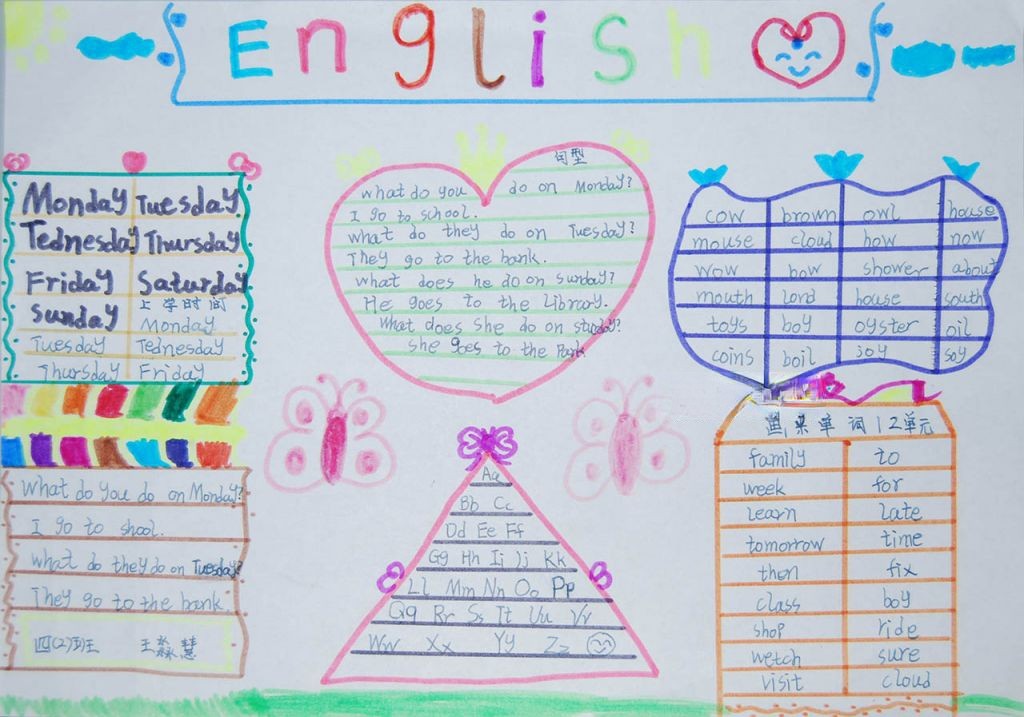 English
Monday Tuesday
Tednesday Thursday
Friday Saturday
Sunday 上学时间
Monday
Tuesday Tednesday
Thursday Friday
What do you do on Monday?
I go to shool.
what do they do on Tuesday?
They go to the bank.
四(2)班 王淼慧
句型
what do you do on Monday?
I go to school.
what do they do on Tuesday?
They go to the bank.
what does he do on sunday?
He goes to the Library.
What does she do on
she goes to the Park
Aa
Bb Cc
Dd Ee Ff
Gg Hh Ii Jj Kk
Ll Mm Nn Oo Pp
Qq Rr Ss Tt Uu Vv
Ww Xx Yy Zz
cow brown owl house
mouse cloud how now
wow bow shower about
mouth lord house south
toys boy oyster oil
coins boil joy soy
单词12单元
family to
week for
learn late
tomorrow time
then fix
class boy
shop ride
wetch sure
visit cloud